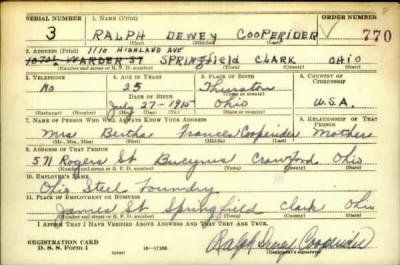 SERIAL NUMBER 1. NAME (Print) ORDER NUMBER
3 RALPH DEWEY COOPERIDER 770
(First) (Middle) (Last)
1110 HIGHLAND AVE
2. ADDRESS (Print)
WARDER ST SPRINGfield CLARK OHIO
(Number and street or R. F. D. number) (Town) (County) (State)
3. TELEPHONE 4. AGE IN YEARS 5. PLACE OF BIRTH 6. COUNTRY OF CITIZENSHIP
No 25 Thurston
DATE OF BIRTH (Town or county)
July-27-1915 Ohio U.S.A.
(Exchange) (Number) (Mo.) (Day) (Yr.) (State or country)
7. NAME OF PERSON WHO WILL ALWAYS KNOW YOUR ADDRESS 8. RELATIONSHIP OF THAT PERSON
Mrs Bertha Frances Cooperider Mother
(Mr., Mrs., Miss) (First) (Middle) (Last)
9. ADDRESS OF THAT PERSON
571 Rogers St Bucyrus Crawford Ohio
(Number and street or R. F. D. number) (Town) (County) (State)
10. EMPLOYER'S NAME
Ohio Steel Foundry
11. PLACE OF EMPLOYMENT OR BUSINESS
James St Springfield Clark Ohio
(Number and street or R. F. D. number) (Town) (County) (State)
I AFFIRM THAT I HAVE VERIFIED ABOVE ANSWERS AND THAT THEY ARE TRUE.
REGISTRATION CARD
D. S. S. Form 1 16—17105 Ralph Dewey Cooperider
(Registrant's signature)